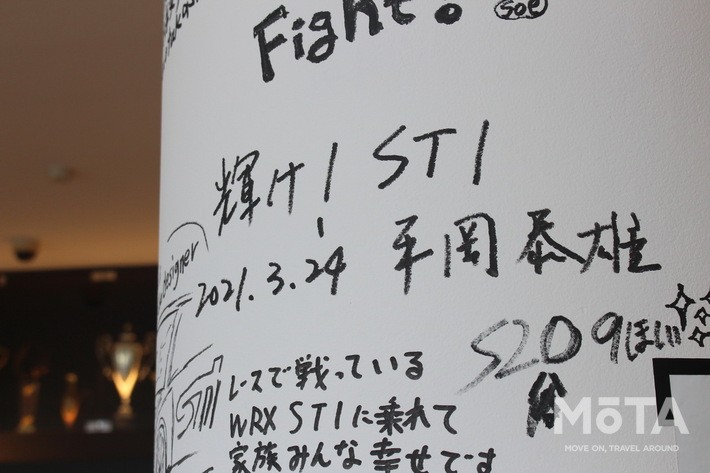 Fight.
soe
輝け! STI
2021.3.24 平岡泰雄
Designer
S209ほしい
レースで戦っている
WRX STIに乗れて
家族みんな幸せです
MōTA
MOVE ON, TRAVEL AROUND